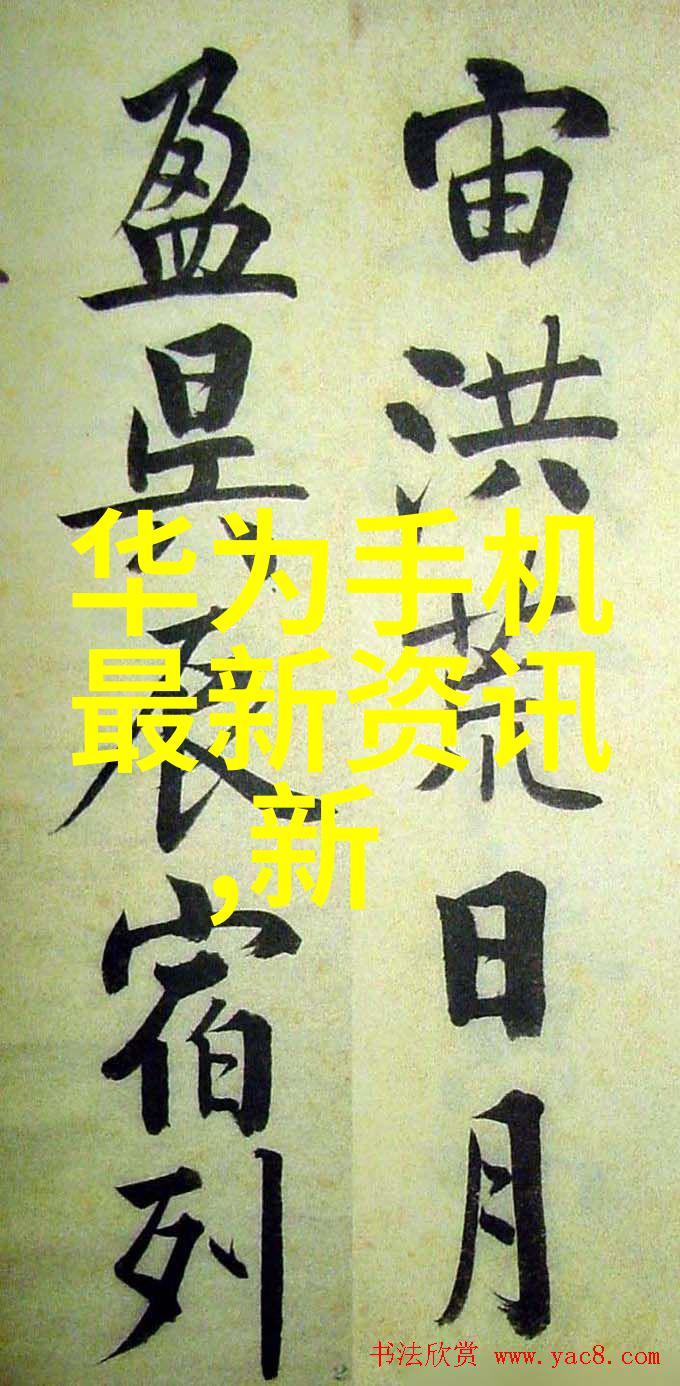 宙洪荒日月
盈昃辰宿列
华为手机
最新资讯
,新
书法欣赏 www.yac8.com